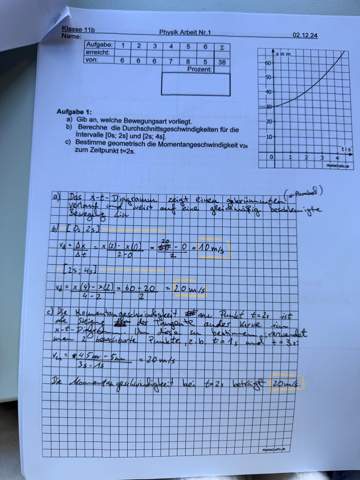 Klasse 11b Physik Arbeit Nr.1 02.12.24
Name:
Aufgabe: 1 2 3 4 5 6 Σ
erreicht:
von: 6 6 6 7 8 5 38
Prozent:
x in m
60
50
40
30
20
10
0 1 2 3 4 t in s
Aufgabe 1:
a) Gib an, welche Bewegungsart vorliegt.
b) Berechne die Durchschnittsgeschwindigkeiten für die
Intervalle [0s; 2s] und [2s; 4s].
c) Bestimme geometrisch die Momentangeschwindigkeit v₂ₛ
zum Zeitpunkt t=2s.
a) Das x-t-Diagramm zeigt einen gekrümmten
Verlauf und weist auf eine gleichmäßig beschleunigte
Bewegung hin
b) [0s; 2s]
= Δx/Δt = x(2) - x(0) / 2-0 = 20 - 0 / 2 = 10 m/s
[2s; 4s]
= x(4) - x(2) / 4-2 = 60-20 / 2 = 20 m/s
c) Die Momentangeschwindigkeit Punkt t=2s ist
die der Kurve im
x-t- Um diese zu bestimmen, verwendet
man 2 Punkte, z.b. t=1s und t=3s:
= 45m - 5m / 3s - 1s = 20 m/s
Die Momentangeschwindigkeit bei t=2s beträgt 20 m/s